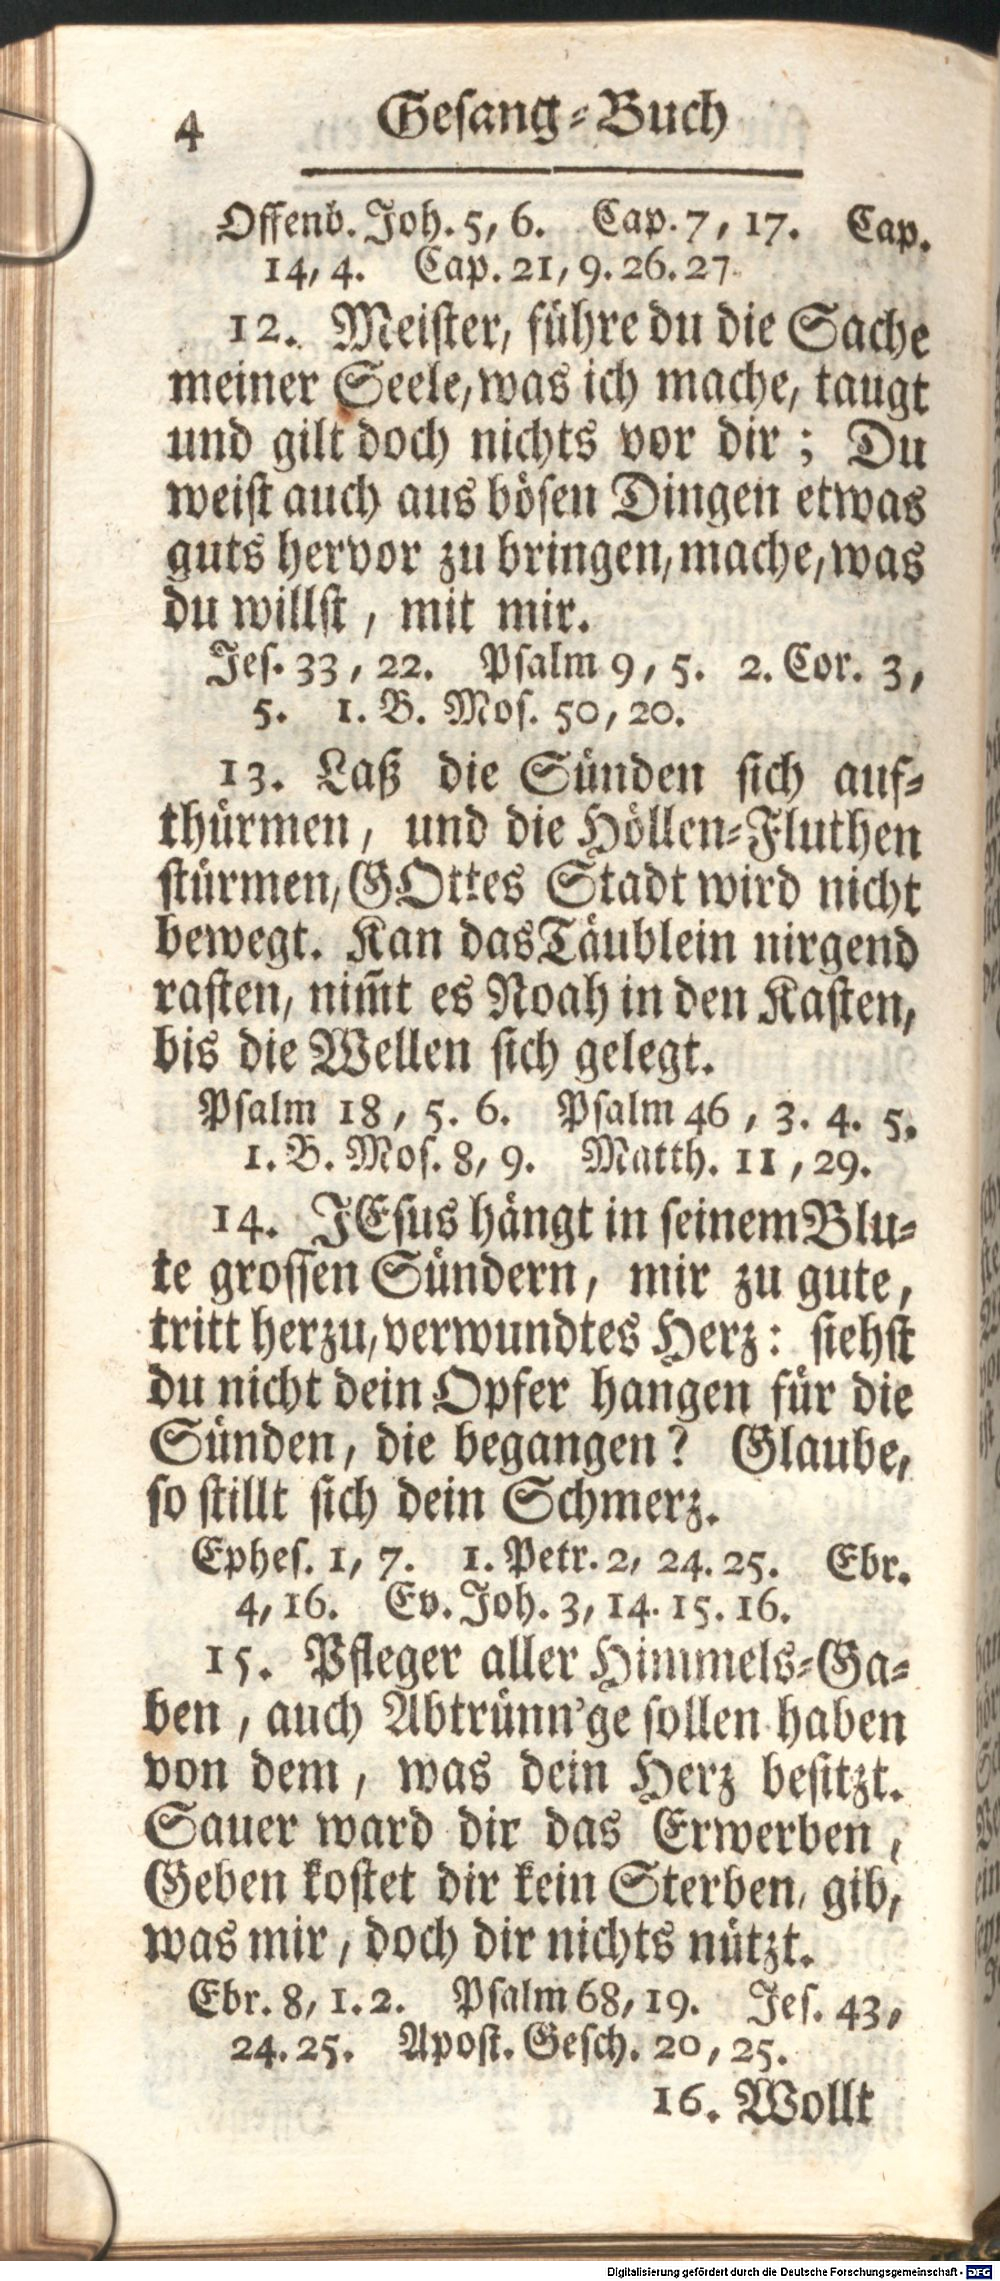 4 Gesang-Buch
Offenb. Joh. 5, 6. Cap. 7, 17. Cap.
14, 4. Cap. 21, 9. 26. 27.
12. Meister, führe du die Sache
meiner Seele, was ich mache, taugt
und gilt doch nichts vor dir; Du
weist auch aus bösen Dingen etwas
guts hervor zu bringen, mache, was
du willst, mit mir.
Jes. 33, 22. Psalm 9, 5. 2. Cor. 3,
5. 1. B. Mos. 50, 20.
13. Laß die Sünden sich auf-
thürmen, und die Höllen-Fluthen
stürmen, GOttes Stadt wird nicht
bewegt. Kan das Täublein nirgend
rasten, nim̃t es Noah in den Kasten,
bis die Wellen sich gelegt.
Psalm 18, 5. 6. Psalm 46, 3. 4. 5.
1. B. Mos. 8, 9. Matth. 11, 29.
14. JEsus hängt in seinem Blu-
te grossen Sündern, mir zu gute,
tritt herzu, verwundtes Herz: siehst
du nicht dein Opfer hangen für die
Sünden, die begangen? Glaube,
so stillt sich dein Schmerz.
Ephes. 1, 7. 1. Petr. 2, 24. 25. Ebr.
4, 16. Ev. Joh. 3, 14. 15. 16.
15. Pfleger aller Himmels-Ga-
ben, auch Abtrünn'ge sollen haben
von dem, was dein Herz besitzt.
Sauer ward dir das Erwerben,
Geben kostet dir kein Sterben, gib,
was mir, doch dir nichts nützt.
Ebr. 8, 1. 2. Psalm 68, 19. Jes. 43,
24. 25. Apost. Gesch. 20, 25.
16. Wollt
Digitalisierung gefördert durch die Deutsche Forschungsgemeinschaft - DFG